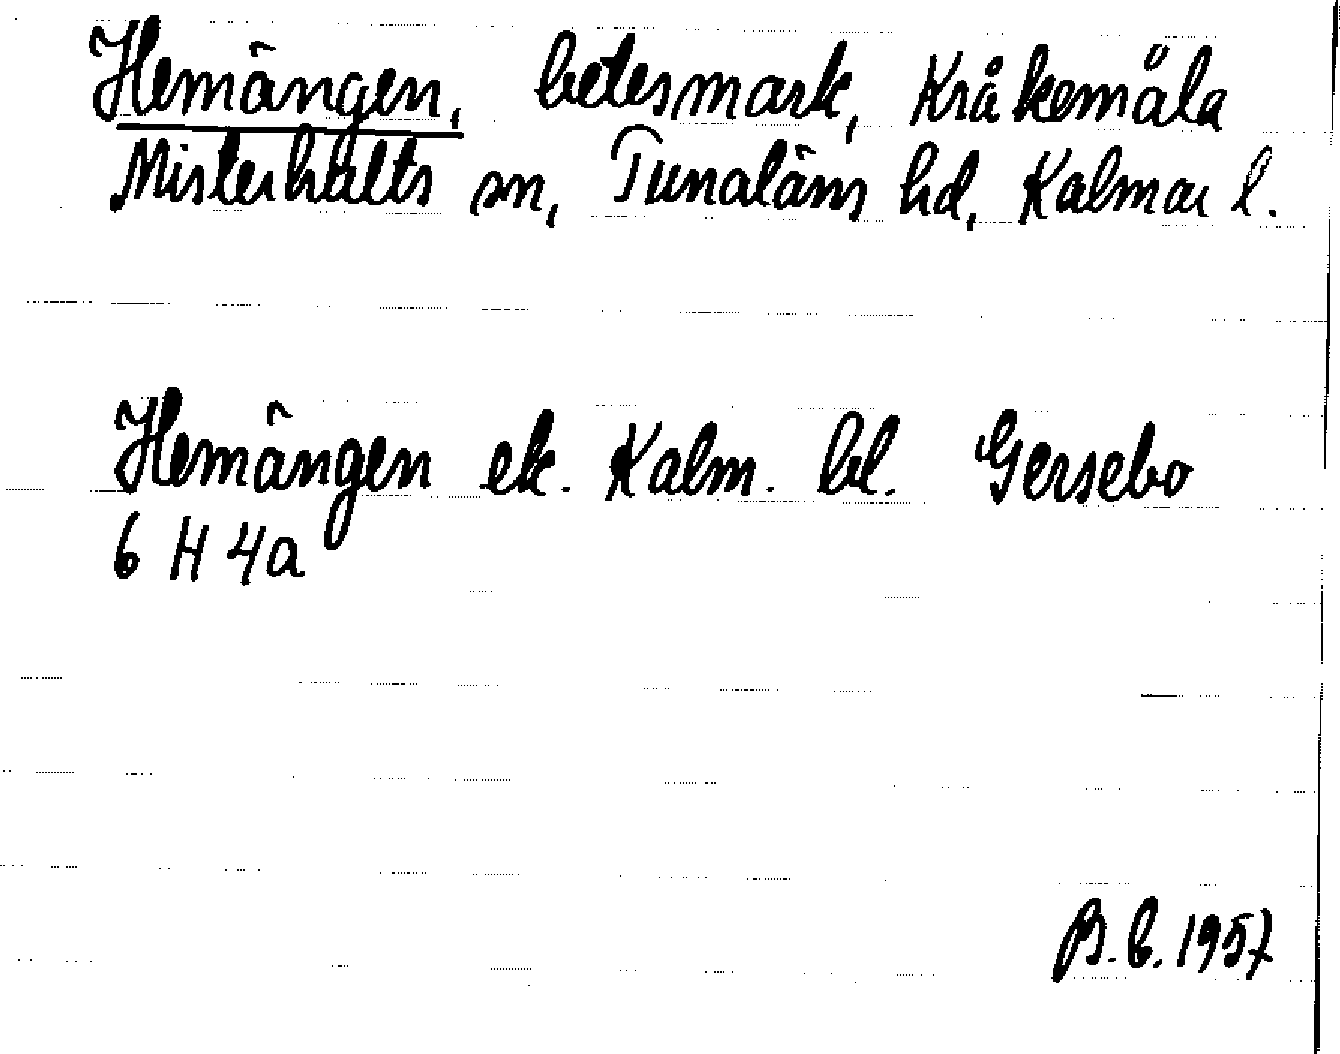 Hemängen, betesmark, Kråkemåla
Misterhults sn, Tunaläns hd, Kalmar l.
Hemängen ek. Kalm. bl. Gersebo
6 H 4a
B.b. 1957